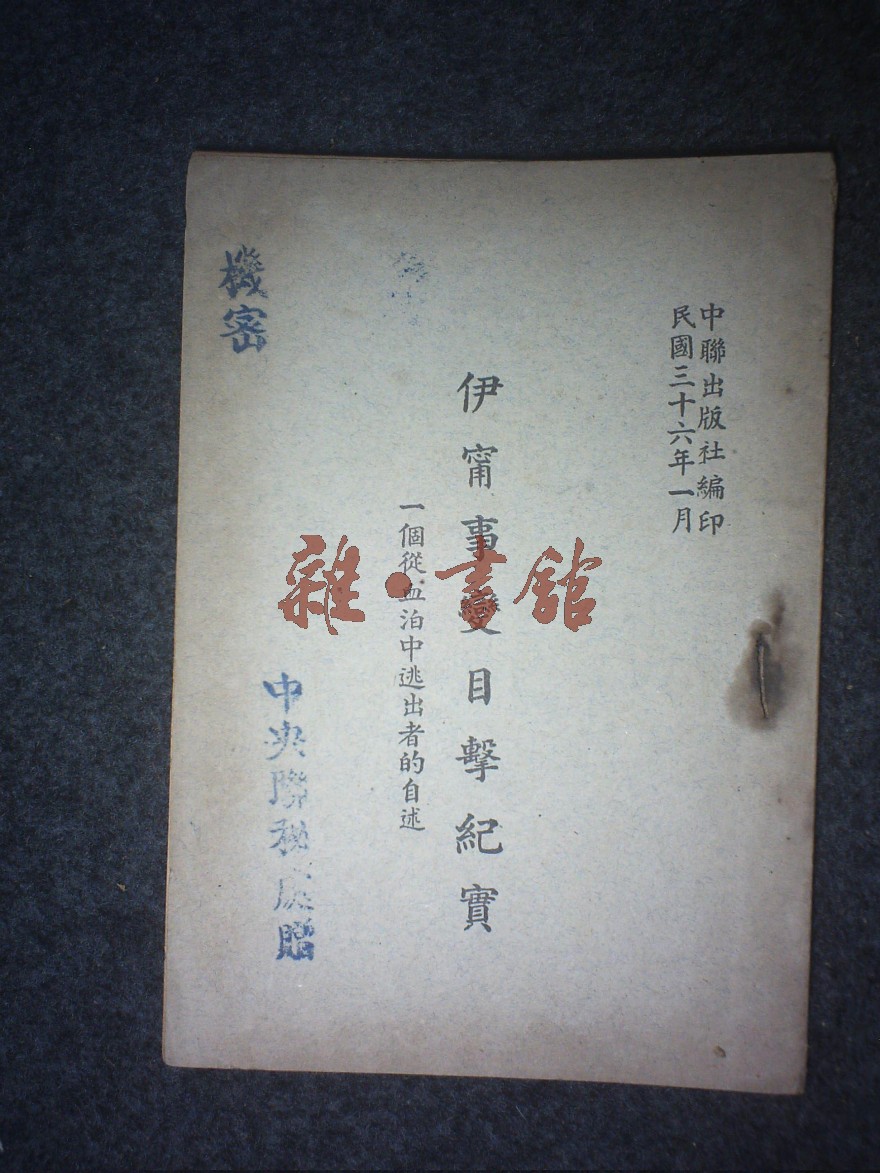 中聯出版社編印
民國三十六年一月
伊甯事變目擊紀實
一個從血泊中逃出者的自述
機密
中央聯秘處贈
雜·書館